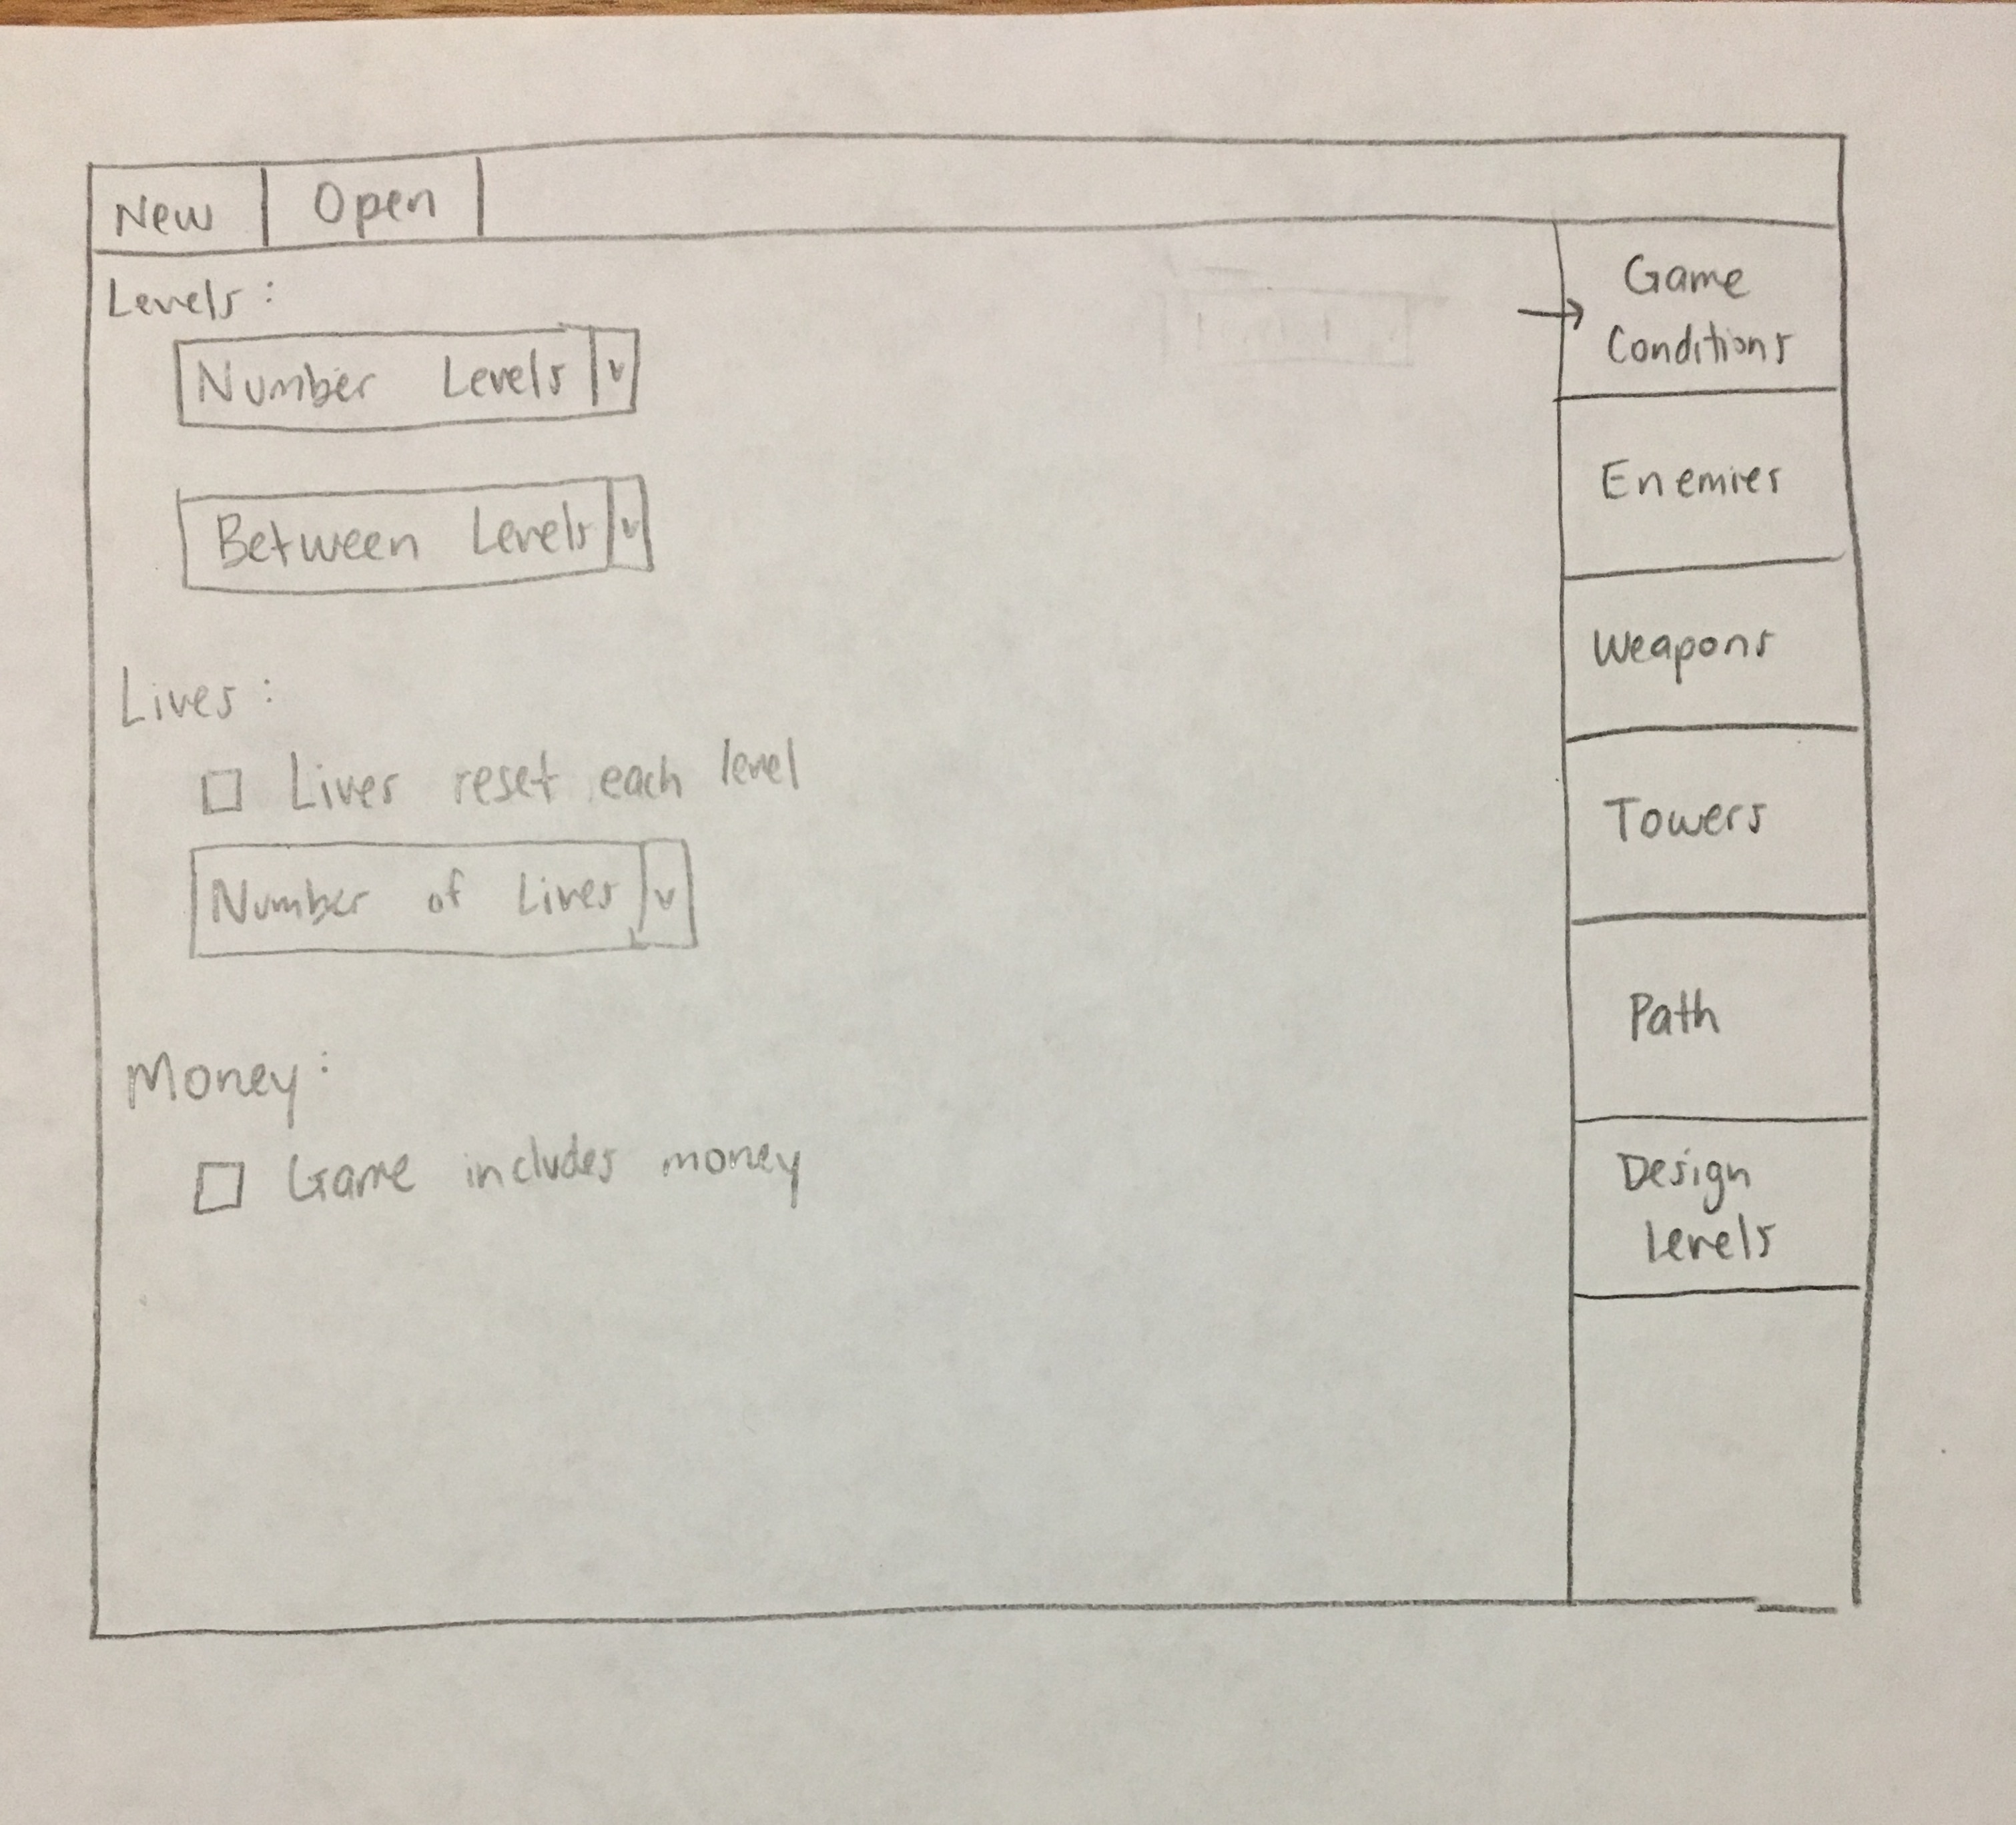 New
Open
Levels:
Number Levels v
Between Levels v
Lives:
Lives reset each level
Number of Lives v
Money:
Game includes money
Game
Conditions
Enemies
Weapons
Towers
Path
Design
Levels